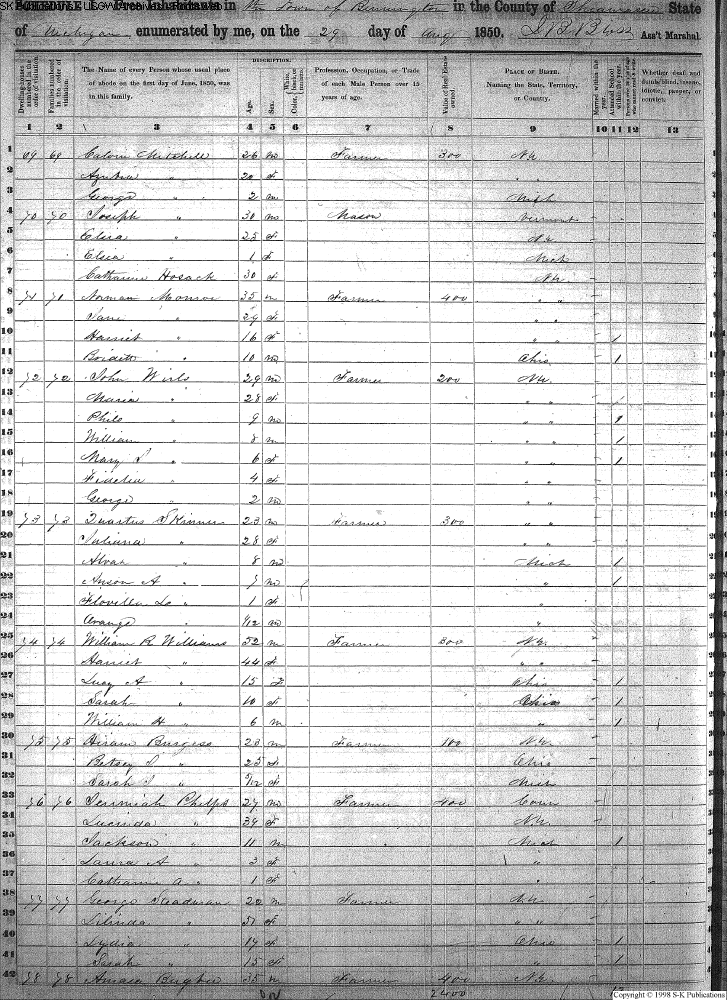 SCHEDULE I. Free Inhabitants in the Town of Bennington in the County of Shiawassee State
of Michigan enumerated by me, on the 29 day of Aug 1850. Ass't Marshal.
DESCRIPTION.
Dwelling-houses numbered in the order of visitation. Families numbered in the order of visitation. The Name of every Person whose usual place of abode on the first day of June, 1850, was in this family. Age. Sex. Color, Profession, Occupation, or Trade of each Male Person over 15 years of age. Value of Real Estate owned PLACE OF BIRTH. Naming the State, Territory, or Country. Married within the year. Attended School within the year. Whether deaf and dumb, blind, insane, idiotic, pauper, or convict.
1 2 3 4 5 6 7 8 9 10 11 12 13
1 69 69 Calvin Mitchell 26 m Farmer 300 N.Y.
2 " 20 f " "
3 George " 2 m Mich
4 70 70 Joseph " 30 m Mason Vermont
5 Eliza " 25 f N.Y.
6 " 1 f Mich
7 Catharine Hosack 30 f N.Y.
8 71 71 Norman Monroe 35 m Farmer 400 " "
9 Jane " 29 f " "
10 Harriet " 16 f " " 1
11 " 10 m Ohio 1
12 72 72 John Wirls 29 m Farmer 200 N.Y.
13 Maria " 28 f " "
14 Philo " 9 m " " 1
15 William " 8 m " " 1
16 Mary S " 6 f " " 1
17 Fidelia " 4 f " "
18 George " 2 m " "
19 73 73 Quartus Skinner 23 m Farmer 300 " "
20 Juliana " 28 f " "
21 Alvah " 8 m Mich 1
22 Anson A " 7 m " 1
23 Flovilla " 1 f "
24 Orange " /12 m "
25 74 74 William R Williams 52 m Farmer 800 N.Y.
26 Harriet " 44 f " "
27 Lucy A " 15 f Ohio 1
28 Sarah " 10 f Ohio 1
29 William H " 6 m " 1
30 75 75 Hiram Burgess 23 m Farmer 100 N.Y.
31 Betsey S " 25 f Ohio
32 Sarah " 5/12 f Mich
33 76 76 Jerimiah Phelps 27 m Farmer 400 Conn
34 Lucinda " 34 f N.Y.
35 Jackson " 11 m Mich 1
36 Laura A " 3 f "
37 Catharine A " 1 f "
38 77 77 George 20 m Farmer N.Y.
39 " 51 f " "
40 Lydia " 19 f Ohio 1
41 Sarah " 15 f " 1
42 78 78 35 m Farmer 400 N.Y.
2400
Copyright © 1998 S-K Publications